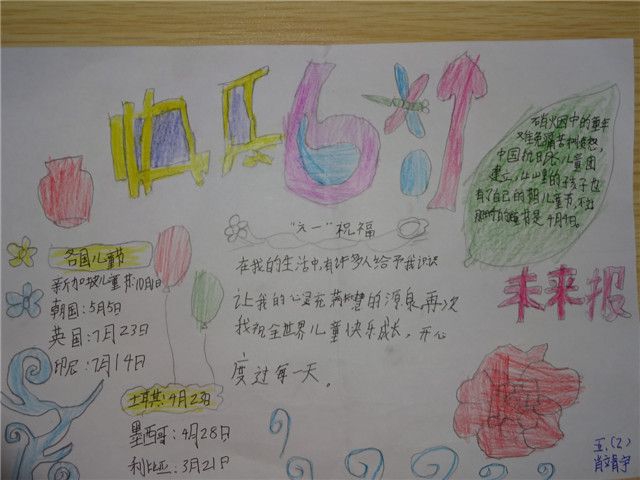 快乐6.1
战火中的童年
难免痛苦和贫愁,
中国抗日
儿童团
建立,让山里的孩子也
有了自己的
儿童节,
节是4月4日。
未来报
"六一"祝福
在我的生活中,有许多人给予我知识
让我的心灵充满智慧的源泉,再次
我祝全世界儿童快乐成长,开心
度过每一天。
各国儿童节
新加坡儿童节:10月1日
朝国:5月5日
英国:7月23日
印尼:7月14日
土耳其:4月23日
墨西哥:4月28日
利比亚:3月21日
五.(2)
肖
宇